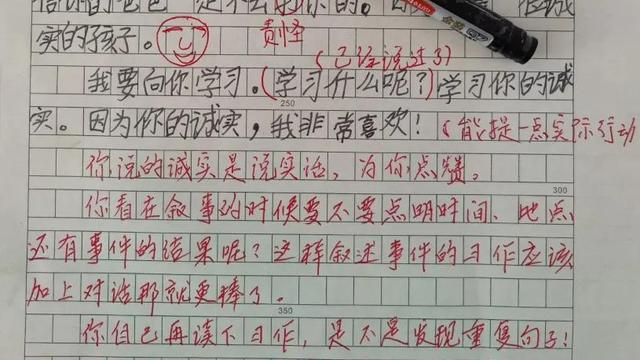 实的孩子。责怪
(已经说过了)
我要向你学习。(学习什么呢?)学习你的诚
250
实。因为你的诚实，我非常喜欢！(能提一点实际行动
你说的诚实是说实话，为你点赞。
300
你看在叙事的时候要不要点明时间、地点
还有事件的结果呢？这样叙述事件的习作应该
加上对话那就更棒了。
350
你自己再读下习作，是不是发现重复句子！